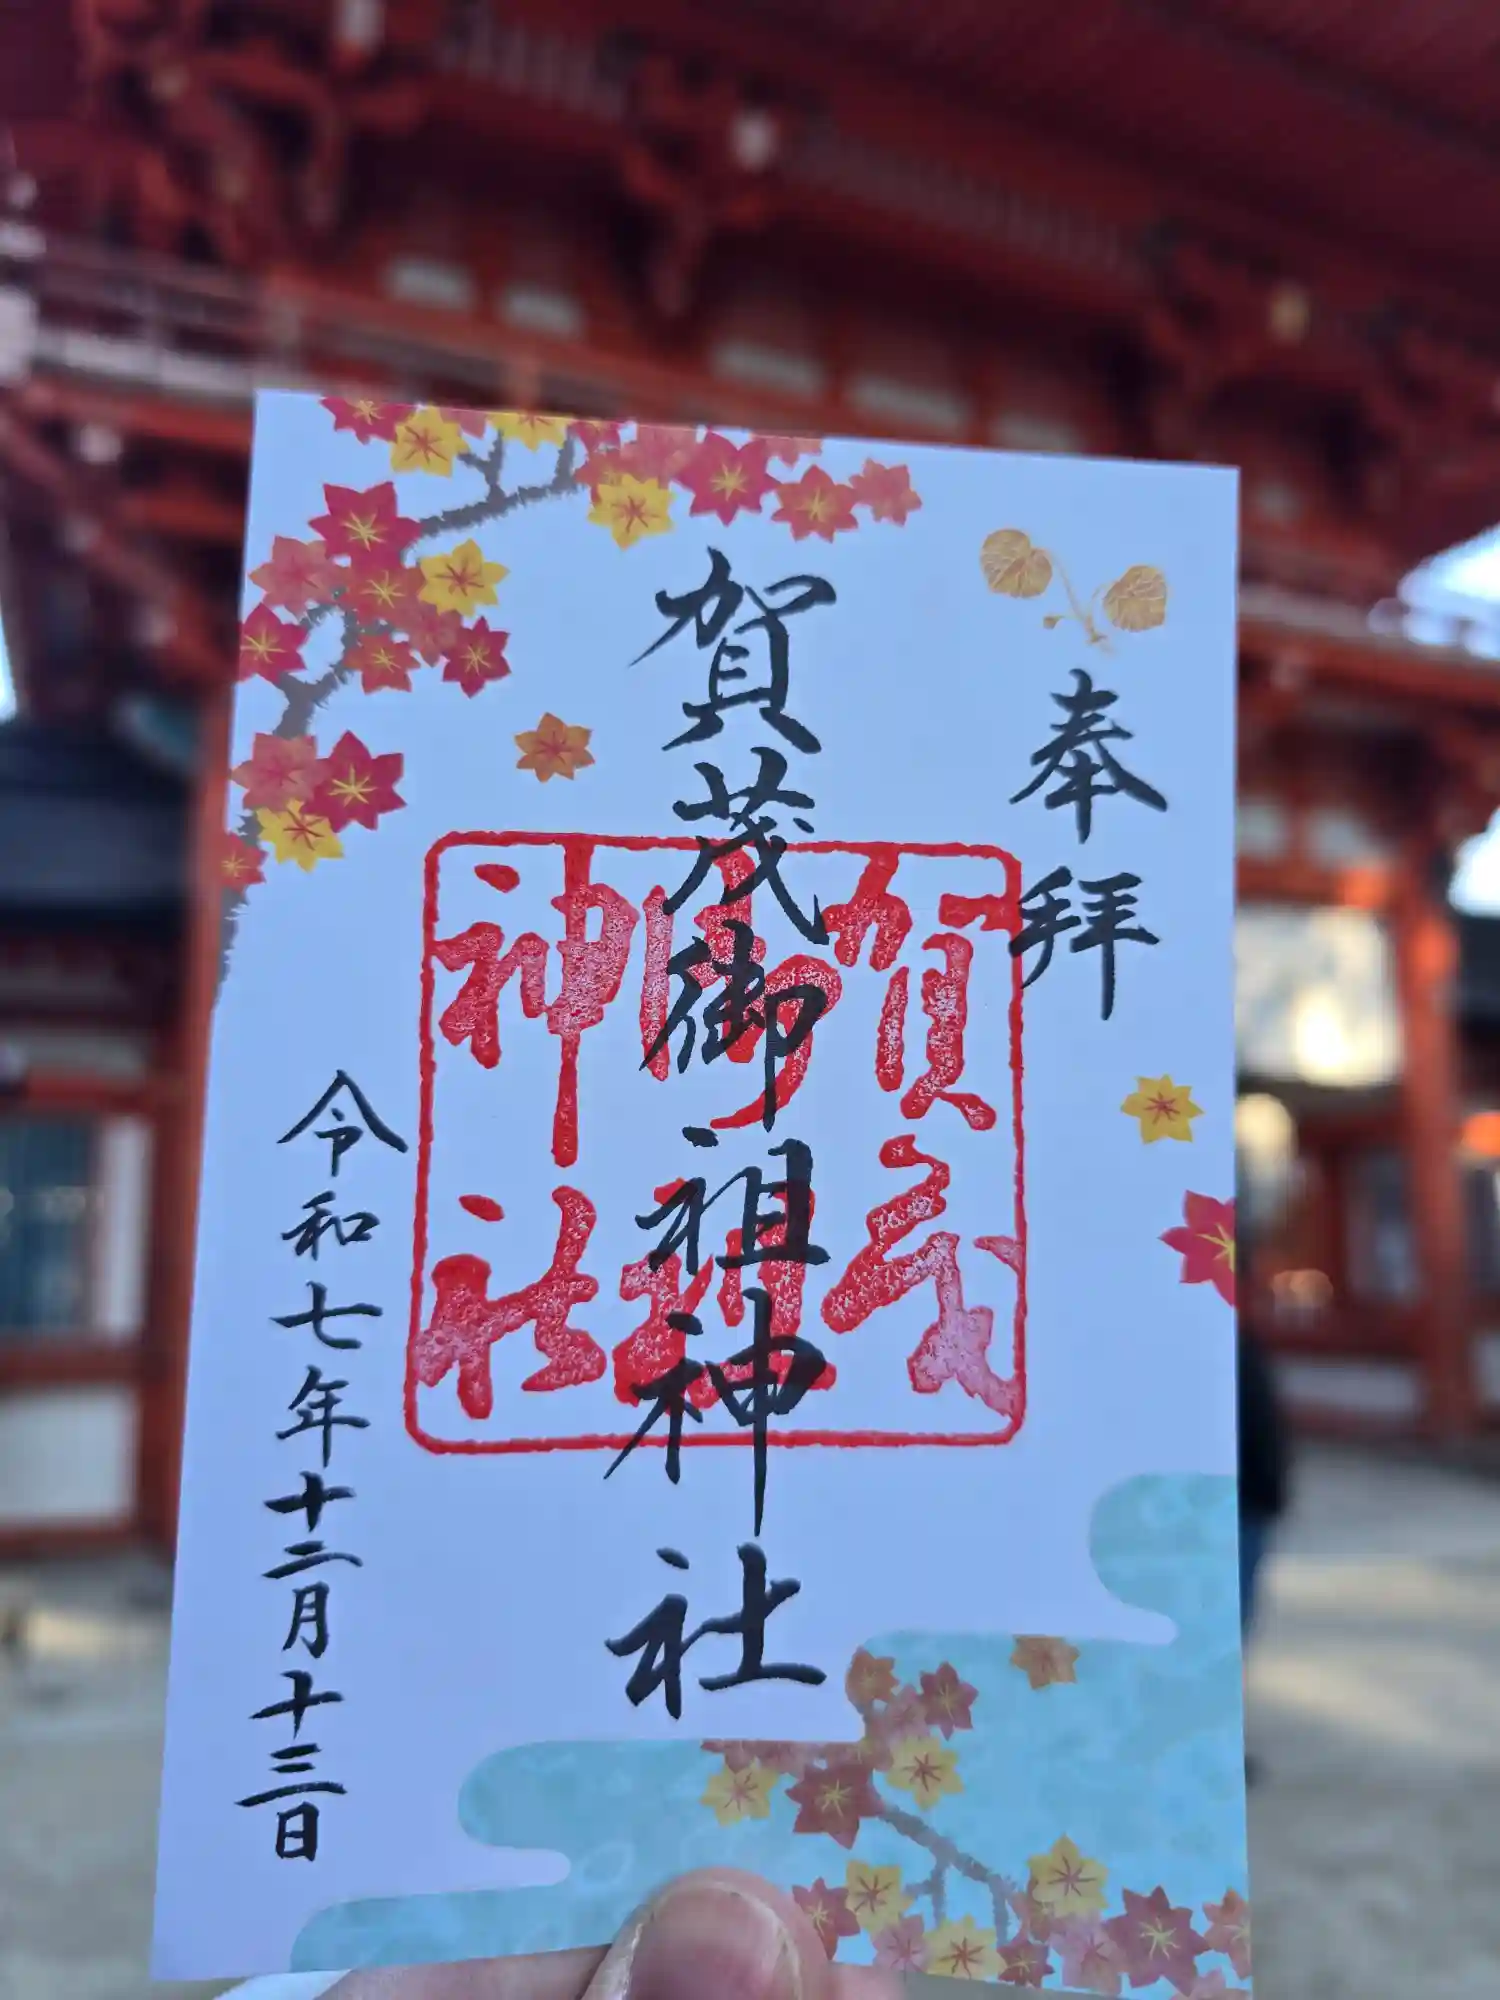 奉拝
賀茂御祖神社
賀茂
御祖
神社
令和七年十二月十三日